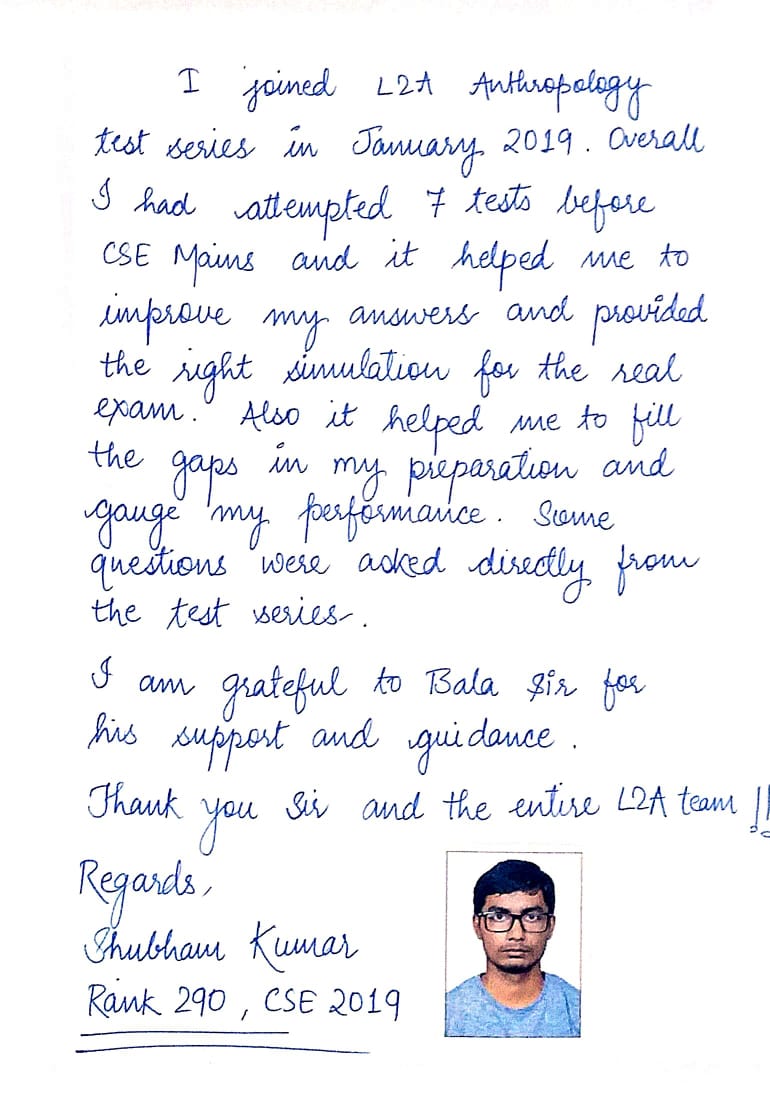 I joined L2A Anthropology
test series in January 2019. Overall
I had attempted 7 tests before
CSE Mains and it helped me to
improve my answers and provided
the right simulation for the real
exam. Also it helped me to fill
the gaps in my preparation and
gauge my performance. Some
questions were asked directly from
the test series.
I am grateful to Bala Sir for
his support and guidance.
Thank you Sir and the entire L2A team !!
Regards,
Shubham Kumar
Rank 290, CSE 2019